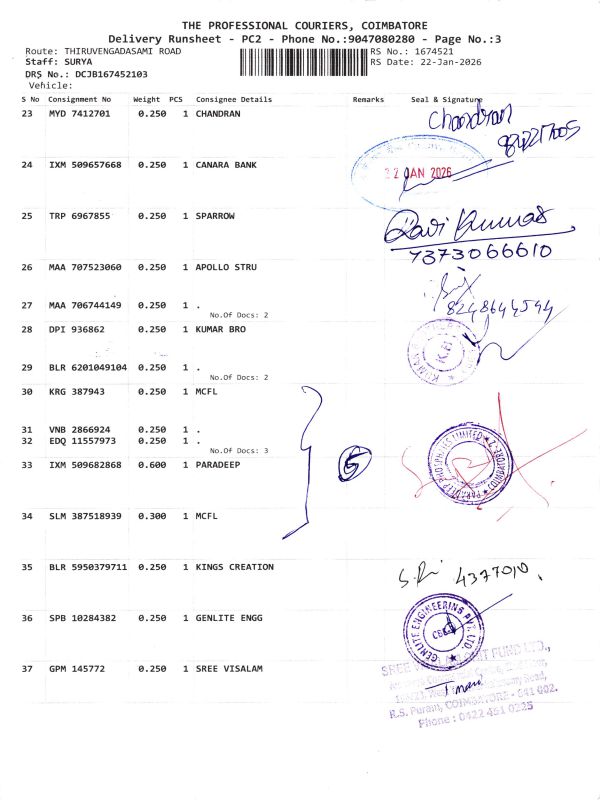 THE PROFESSIONAL COURIERS, COIMBATORE
Delivery Runsheet - PC2 - Phone No.:9047080280 - Page No.:3
Route: THIRUVENGADASAMI ROAD RS No.: 1674521
Staff: SURYA RS Date: 22-Jan-2026
DRS No.: DCJB167452103
Vehicle:
S No Consignment No Weight PCS Consignee Details Remarks Seal & Signature
23 MYD 7412701 0.250 1 CHANDRAN Chandran
24 IXM 509657668 0.250 1 CANARA BANK 22 JAN 2026
25 TRP 6967855 0.250 1 SPARROW Ravi Kumar
7373066610
26 MAA 707523060 0.250 1 APOLLO STRU
27 MAA 706744149 0.250 1 . 8248644544
No.Of Docs: 2
28 DPI 936862 0.250 1 KUMAR BRO
29 BLR 6201049104 0.250 1 .
No.Of Docs: 2
30 KRG 387943 0.250 1 MCFL
31 VNB 2866924 0.250 1 .
32 EDQ 11557973 0.250 1 .
No.Of Docs: 3
33 IXM 509682868 0.600 1 PARADEEP 5
PARADEEP PHOSPHATES LIMITED COIMBATORE-2
34 SLM 387518939 0.300 1 MCFL
35 BLR 5950379711 0.250 1 KINGS CREATION 4377010
36 SPB 10284382 0.250 1 GENLITE ENGG
GENLITE ENGINEERING PVT. LTD. CBE
37 GPM 145772 0.250 1 SREE VISALAM
SREE FUND LTD.,
R.S. Puram, COIMBATORE - 641 002.
Phone : 0422 451 0225